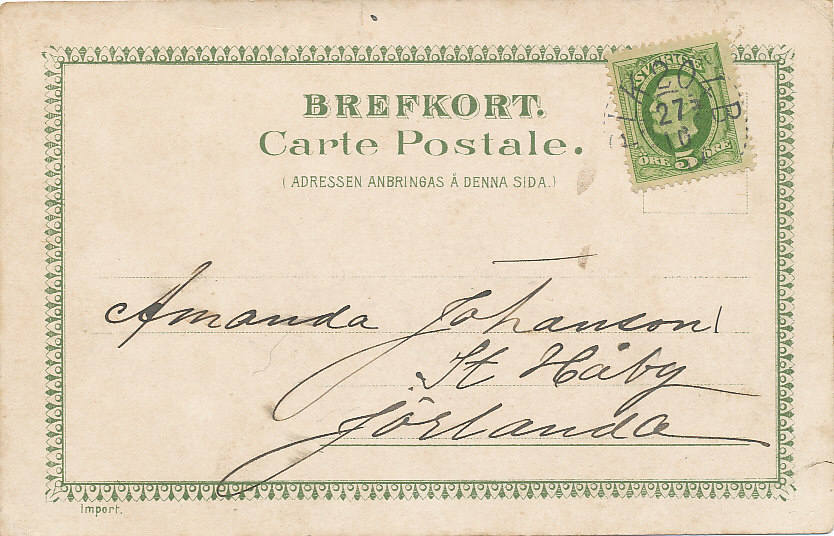 BREFKORT.
Carte Postale.
(ADRESSEN ANBRINGAS Å DENNA SIDA.)
SVERIGE
ÖRE 5 ÖRE
27
Amanda Johanson
St Håby
Jörlanda
Import.